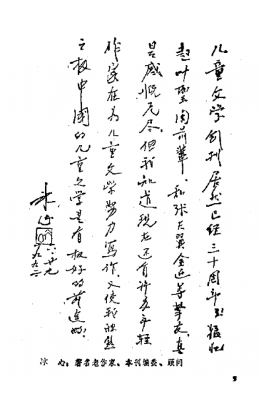 儿童文学创刊居然已经三十周年了
起叶圣陶前辈和张天翼金近等挚友,真
是感慨无尽但我知道现在还有许多年轻
作家在为儿童文学努力写作又使我欣然
之极中国的儿童文学是有极好的前途的
冰心
六、廿九
一九九二
冰 心:著名老作家、本刊编委、顾问